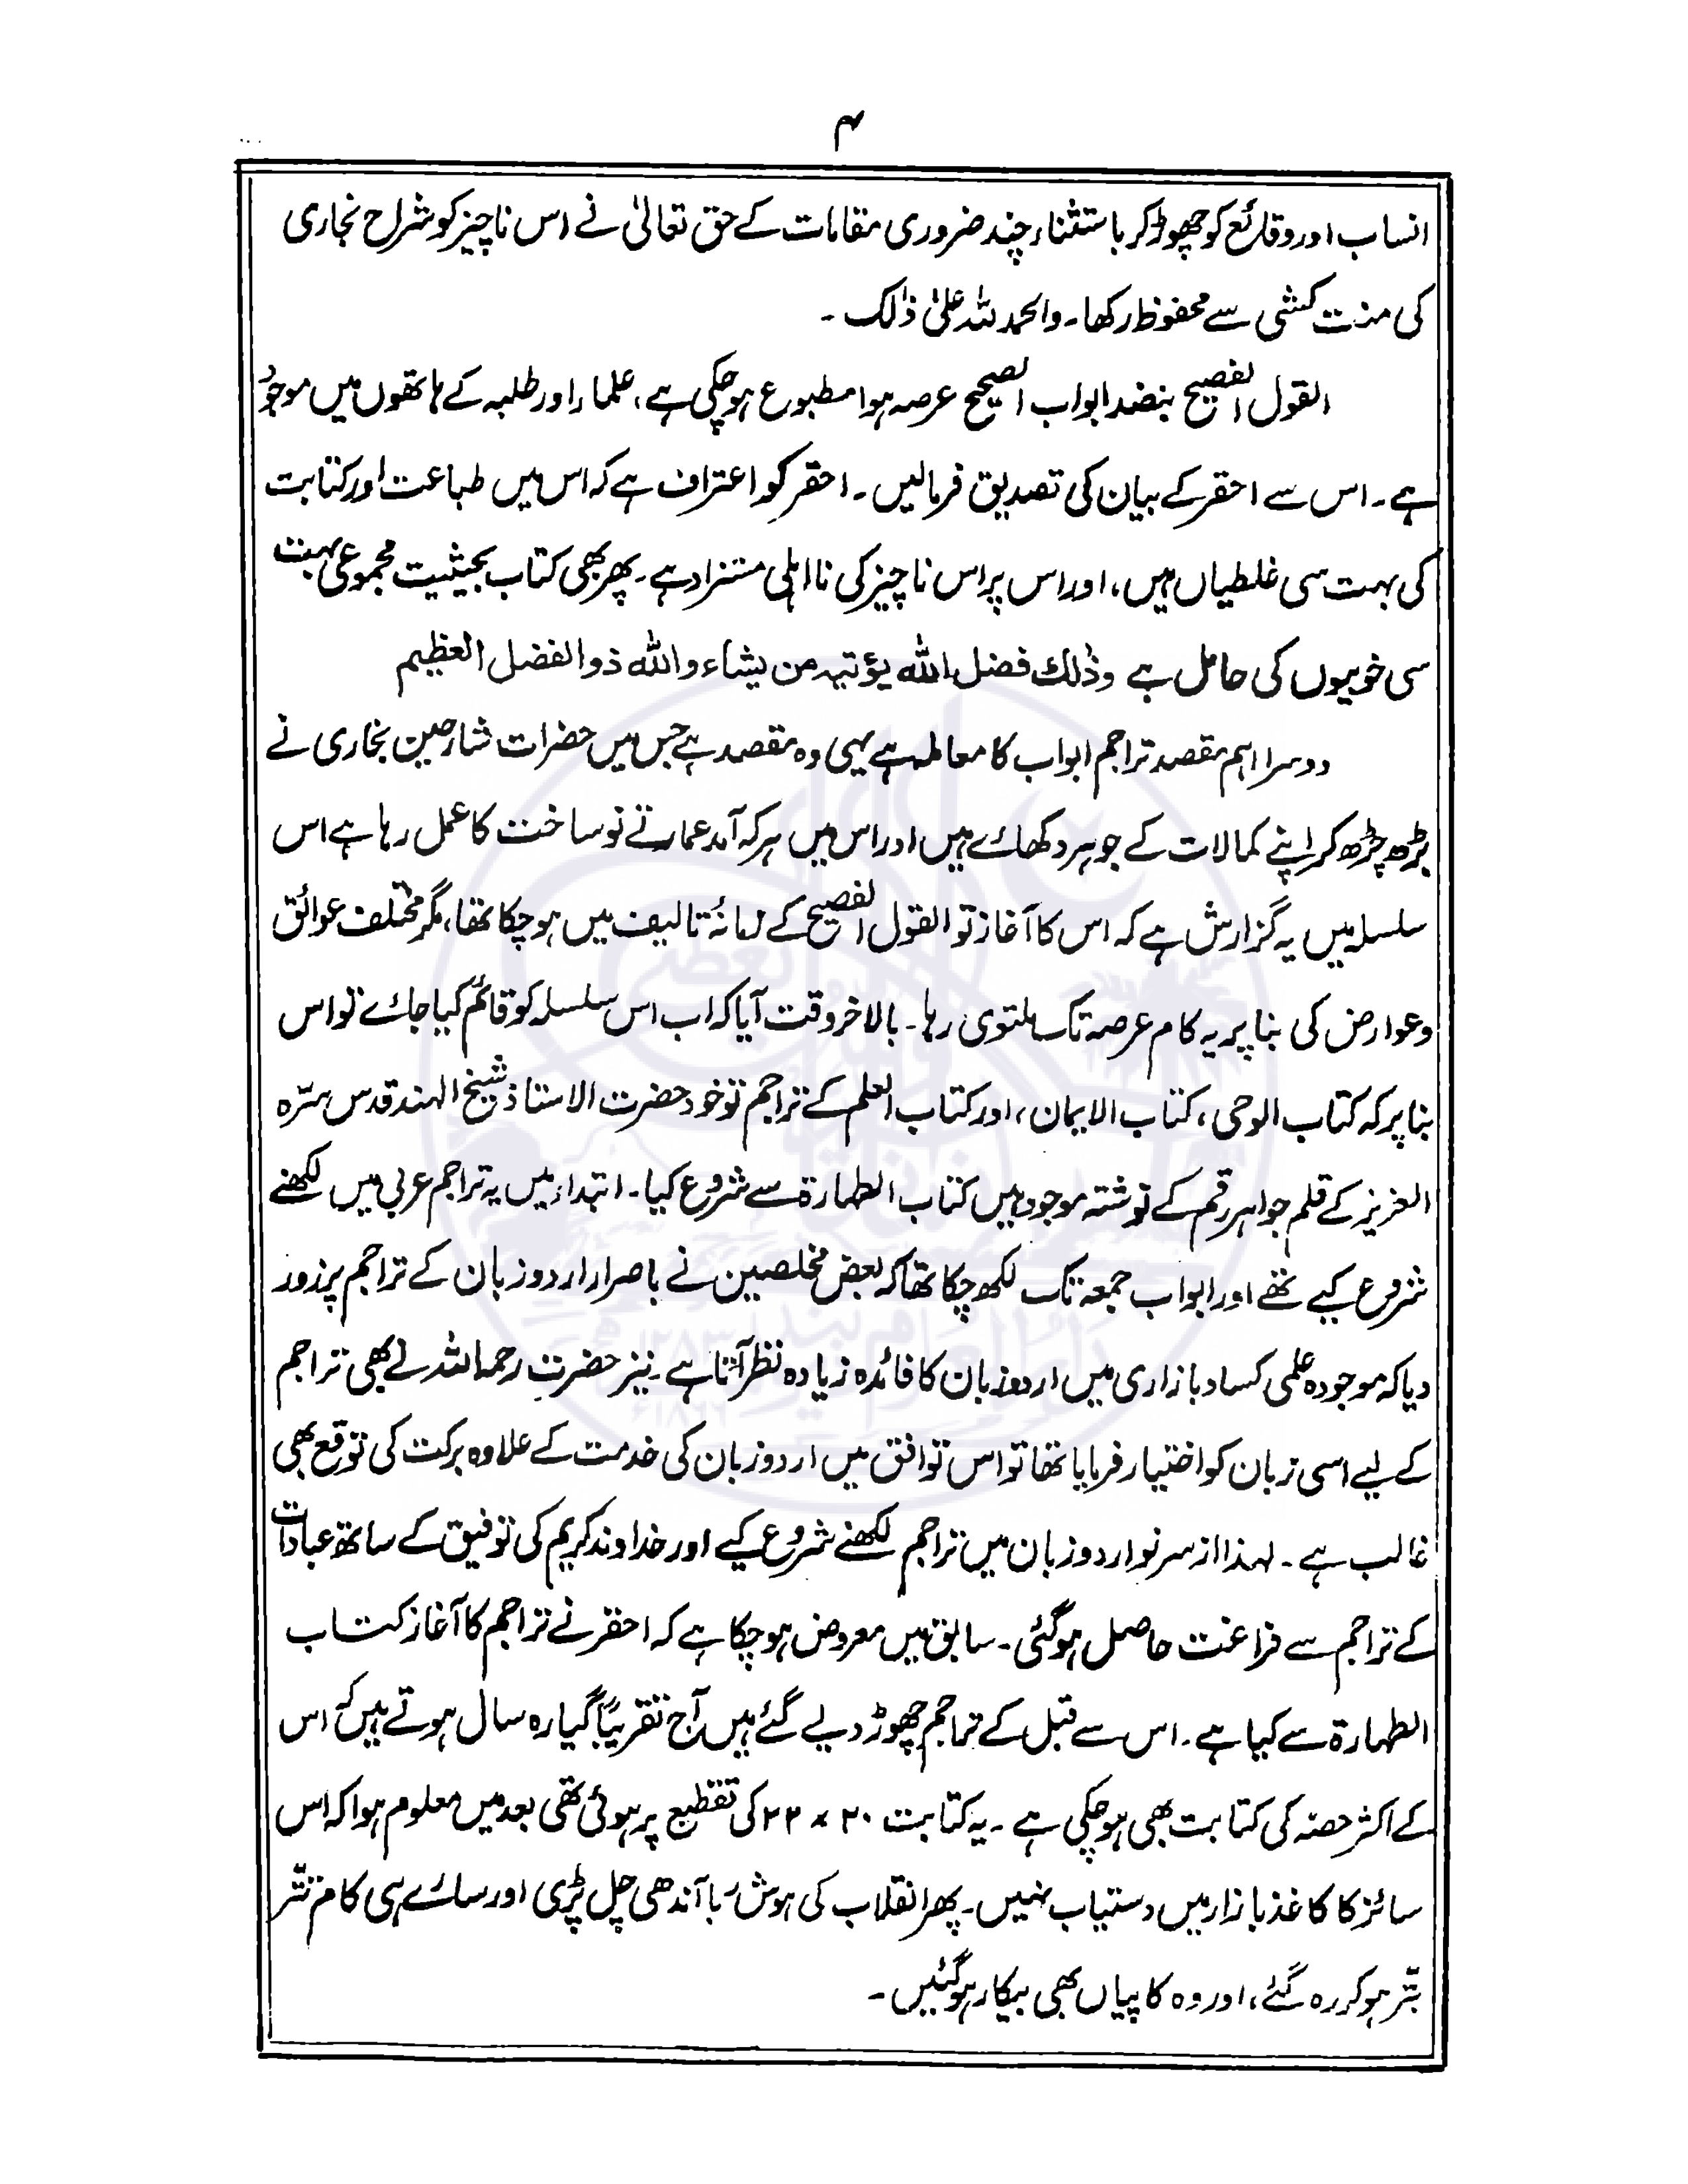 ۴
انساب اور وقائع کو چھوڑ کر باستثناء چند ضروری مقامات کے حق تعالیٰ نے اس ناچیز کو شراح بخاری
کی منت کشی سے محفوظ رکھا۔ والحمد للہ علیٰ ذٰلک ۔
القول الفصیح بنضد ابواب الصحیح عرصہ ہوا مطبوع ہوچکی ہے، علماء اور طلبہ کے ہاتھوں میں موجود
ہے۔ اس سے احقر کے بیان کی تصدیق فرمالیں۔ احقر کو اعتراف ہے کہ اس میں طباعت اور کتابت
کی بہت سی غلطیاں ہیں، اور اس پر اس ناچیز کی نااہلی مستزاد ہے۔ پھر بھی کتاب بحیثیت مجموعی بہت
سی خوبیوں کی حامل ہے وذٰلک فضل اللہ یؤتیہ من یشاء واللہ ذو الفضل العظیم
دوسرا اہم مقصد تراجم ابواب کا معاملہ ہے یہی وہ مقصد ہے جس میں حضرات شارحین بخاری نے
بڑھ چڑھ کر اپنے کمالات کے جوہر دکھائے ہیں اور اس میں ہر کہ آمد عمارتے نو ساخت کا عمل رہا ہے اس
سلسلہ میں یہ گزارش ہے کہ اس کا آغاز تو القول الفصیح کے زمانۂ تالیف میں ہوچکا تھا، مگر مختلف عوائق
وعوارض کی بنا پر یہ کام عرصہ تک ملتوی رہا۔ بالآخر وقت آیا کہ اب اس سلسلہ کو قائم کیا جائے تو اس
بنا پر کہ کتاب الوحی، کتاب الایمان، اور کتاب العلم کے تراجم تو خود حضرت الاستاذ شیخ الہند قدس سرّہ
العزیز کے قلم جواہر رقم کے نوشتہ موجود ہیں کتاب الطہارۃ سے شروع کیا۔ ابتداء میں یہ تراجم عربی میں لکھنے
شروع کیے تھے اور ابواب جمعہ تک لکھ چکا تھا کہ بعض مخلصین نے باصرار اردو زبان کے تراجم پر زور
دیا کہ موجودہ علمی کساد بازاری میں اردو زبان کا فائدہ زیادہ نظر آتا ہے۔ نیز حضرت رحمہ اللہ نے بھی تراجم
کے لیے اسی زبان کو اختیار فرمایا تھا تو اس توافق میں اردو زبان کی خدمت کے علاوہ برکت کی توقع بھی
غالب ہے۔ لہذا از سر نو اردو زبان میں تراجم لکھنے شروع کیے اور خداوند کریم کی توفیق کے ساتھ عبادات
کے تراجم سے فراغت حاصل ہوگئی۔ سابق میں معروض ہوچکا ہے کہ احقر نے تراجم کا آغاز کتاب
الطہارۃ سے کیا ہے۔ اس سے قبل کے تراجم چھوڑ دیے گئے ہیں آج تقریباً گیارہ سال ہوتے ہیں کہ اس
کے اکثر حصہ کی کتابت بھی ہوچکی ہے۔ یہ کتابت ۲۰ × ۲۲ کی تقطیع پر ہوئی تھی بعد میں معلوم ہوا کہ اس
سائز کا کاغذ بازار میں دستیاب نہیں۔ پھر انقلاب کی ہوش رُبا آندھی چل پڑی اور سارے ہی کام تتّر
بتّر ہوکر رہ گئے، اور وہ کاپیاں بھی بیکار ہوگئیں۔